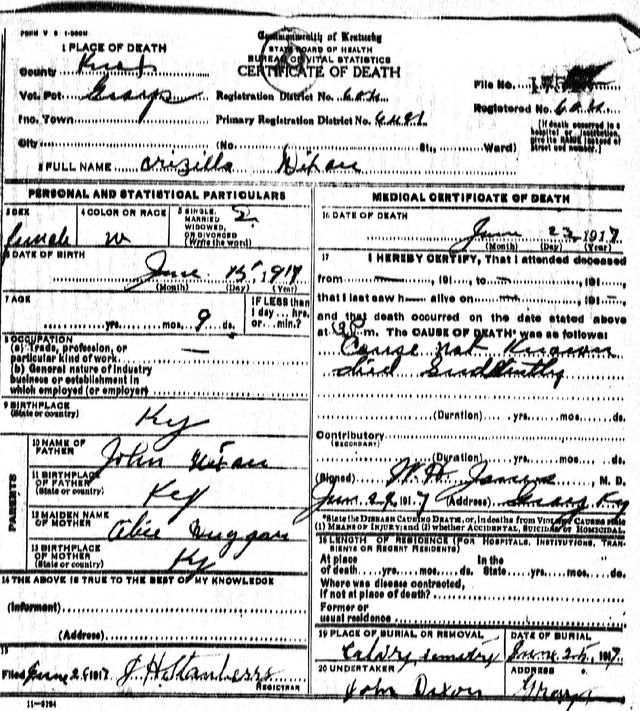 FORM V S 1-500M
Commonwealth of Kentucky
STATE BOARD OF HEALTH
BUREAU OF VITAL STATISTICS
CERTIFICATE OF DEATH
1 PLACE OF DEATH
County Knox
Vot. Pct
Registration District No.
File No.
Inc. Town
Primary Registration District No.
Registered No.
City (No. St., Ward)
(If death occurred in a hospital or institution, give its NAME instead of street and number.)
2 FULL NAME Dixon
PERSONAL AND STATISTICAL PARTICULARS
3 SEX female
4 COLOR OR RACE W
5 SINGLE, MARRIED WIDOWED, OR DIVORCED (Write the word) S.
6 DATE OF BIRTH
June 15, 1917
(Month) (Day) (Year)
7 AGE
yrs. mos. 9 ds.
IF LESS than 1 day... hrs. or... min.?
8 OCCUPATION
(a) Trade, profession, or particular kind of work —
(b) General nature of industry business or establishment in which employed (or employer)
9 BIRTHPLACE
(State or country) Ky
PARENTS
10 NAME OF FATHER John
11 BIRTHPLACE OF FATHER (State or country) Ky
12 MAIDEN NAME OF MOTHER Alice
13 BIRTHPLACE OF MOTHER (State or country) Ky
14 THE ABOVE IS TRUE TO THE BEST OF MY KNOWLEDGE
(Informant)
(Address)
15
Filed June 1917
REGISTRAR
11-5184
MEDICAL CERTIFICATE OF DEATH
16 DATE OF DEATH
June 23 1917
(Month) (Day) (Year)
17 I HEREBY CERTIFY, That I attended deceased
from — , 191 , to — , 191
that I last saw h— alive on — , 191
and that death occurred on the date stated above
at m. The CAUSE OF DEATH* was as follows:
Cause not Known
died Suddently
(Duration) yrs. mos. ds.
Contributory
(SECONDARY)
(Duration) yrs. mos. ds.
(Signed) W. H. M. D.
June 1917 (Address) Ky
*State the DISEASE CAUSING DEATH, or, in deaths from VIOLENT CAUSES state
(1) MEANS OF INJURY; and (2) whether ACCIDENTAL, SUICIDAL or HOMICIDAL.
18 LENGTH OF RESIDENCE (FOR HOSPITALS, INSTITUTIONS, TRANSIENTS OR RECENT RESIDENTS)
At place of death yrs. mos. ds. In the State yrs. mos. ds.
Where was disease contracted,
if not at place of death?
Former or
usual residence
19 PLACE OF BURIAL OR REMOVAL
DATE OF BURIAL
June 25, 1917
20 UNDERTAKER
John Dixon
ADDRESS